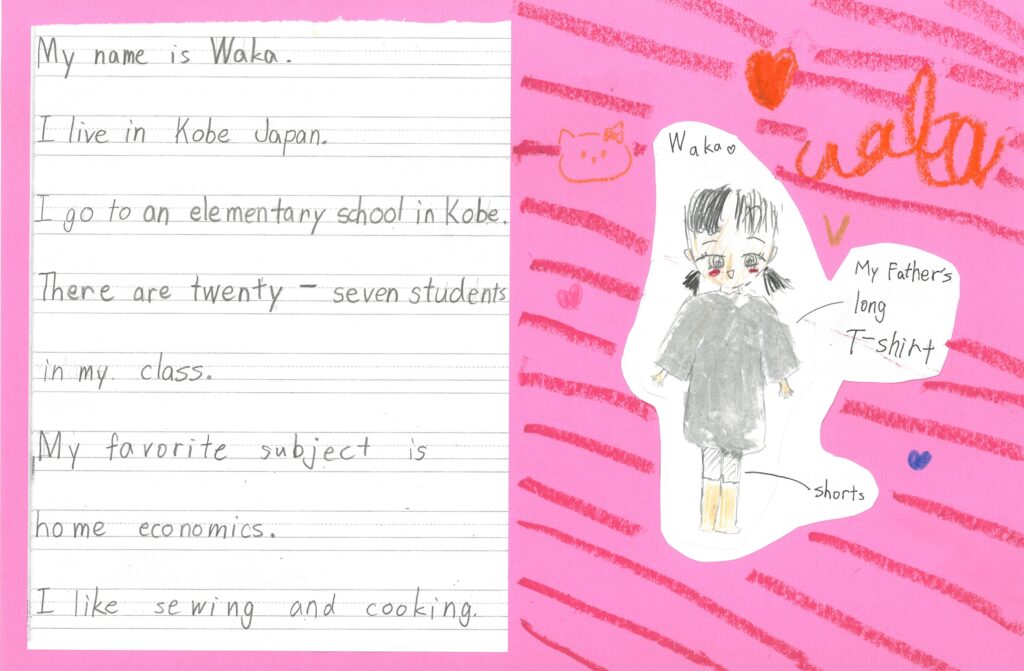 My name is Waka.
I live in Kobe Japan.
I go to an elementary school in Kobe.
There are twenty - seven students
in my class.
My favorite subject is
home economics.
I like sewing and cooking.
waka
Waka♡
My Father's
long
T-shirt
shorts